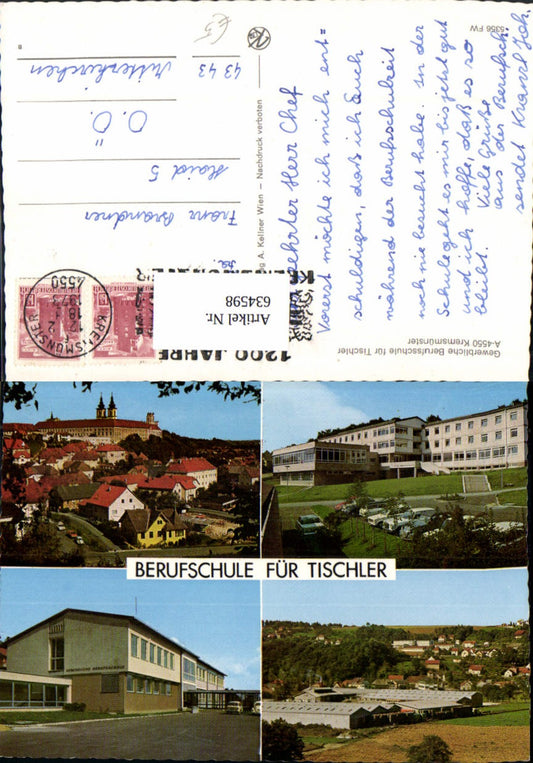 5356 FW
Gewerbliche Berufsschule für Tischler
A-4550 Kremsmünster
Herr Chef
Vorerst möchte ich mich ent=
schuldigen, daß ich Euch
während der Berufschulzeit
noch nie besucht habe. In der
Schule geht es mir bis jetzt gut
und ich hoffe, daß es so
bleibt. Viele Grüße
aus der Berufsch.
sendet Kranzl Joh.
A. Kellner Wien — Nachdruck verboten
1200 JAHRE
KREMSMÜNSTER
KREMSMÜNSTER
4550
Fa.
Franz Brandner
Haid 5
O.Ö.
4343
Mitterkirchen
€5
Artikel Nr.
634598
BERUFSCHULE FÜR TISCHLER
GEWERBLICHE BERUFSSCHULE